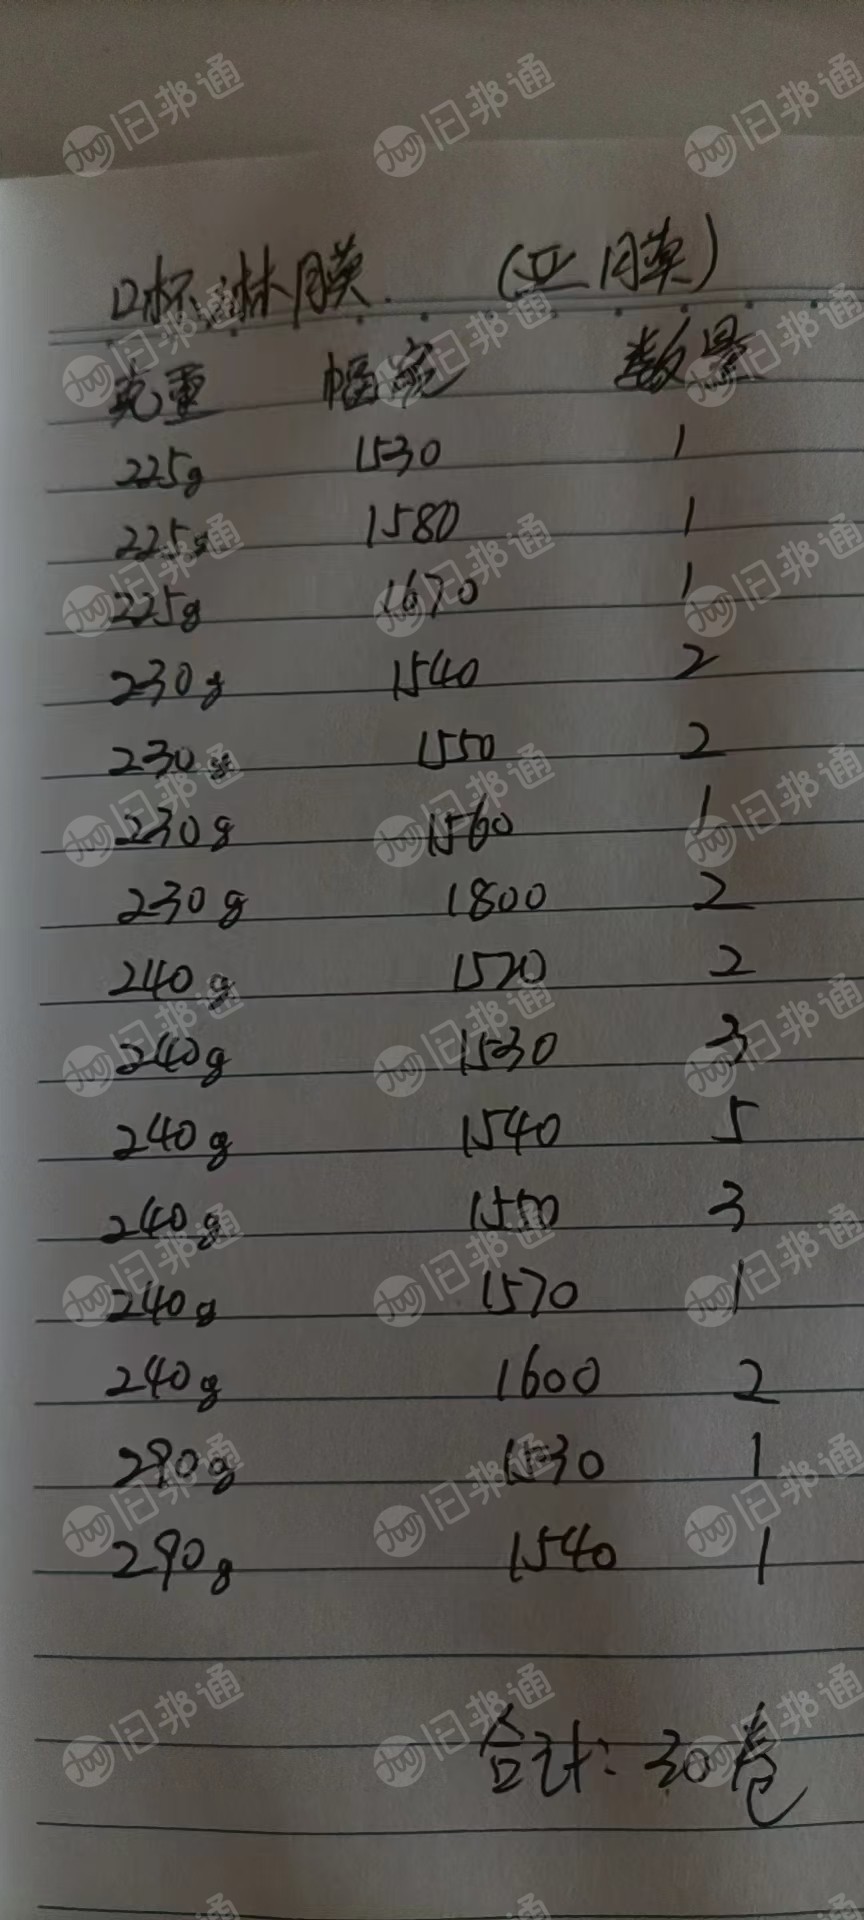 口杯淋膜 (亚膜)
克重 幅宽 数量
225g 1530 1
225g 1580 1
225g 1670 1
230g 1540 2
230g 1550 2
230g 1560 1
230g 1800 2
240g 1520 2
240g 1530 3
240g 1540 5
240g 1550 3
240g 1570 1
240g 1600 2
290g 1530 1
290g 1540 1
合计: 30卷
旧邦通